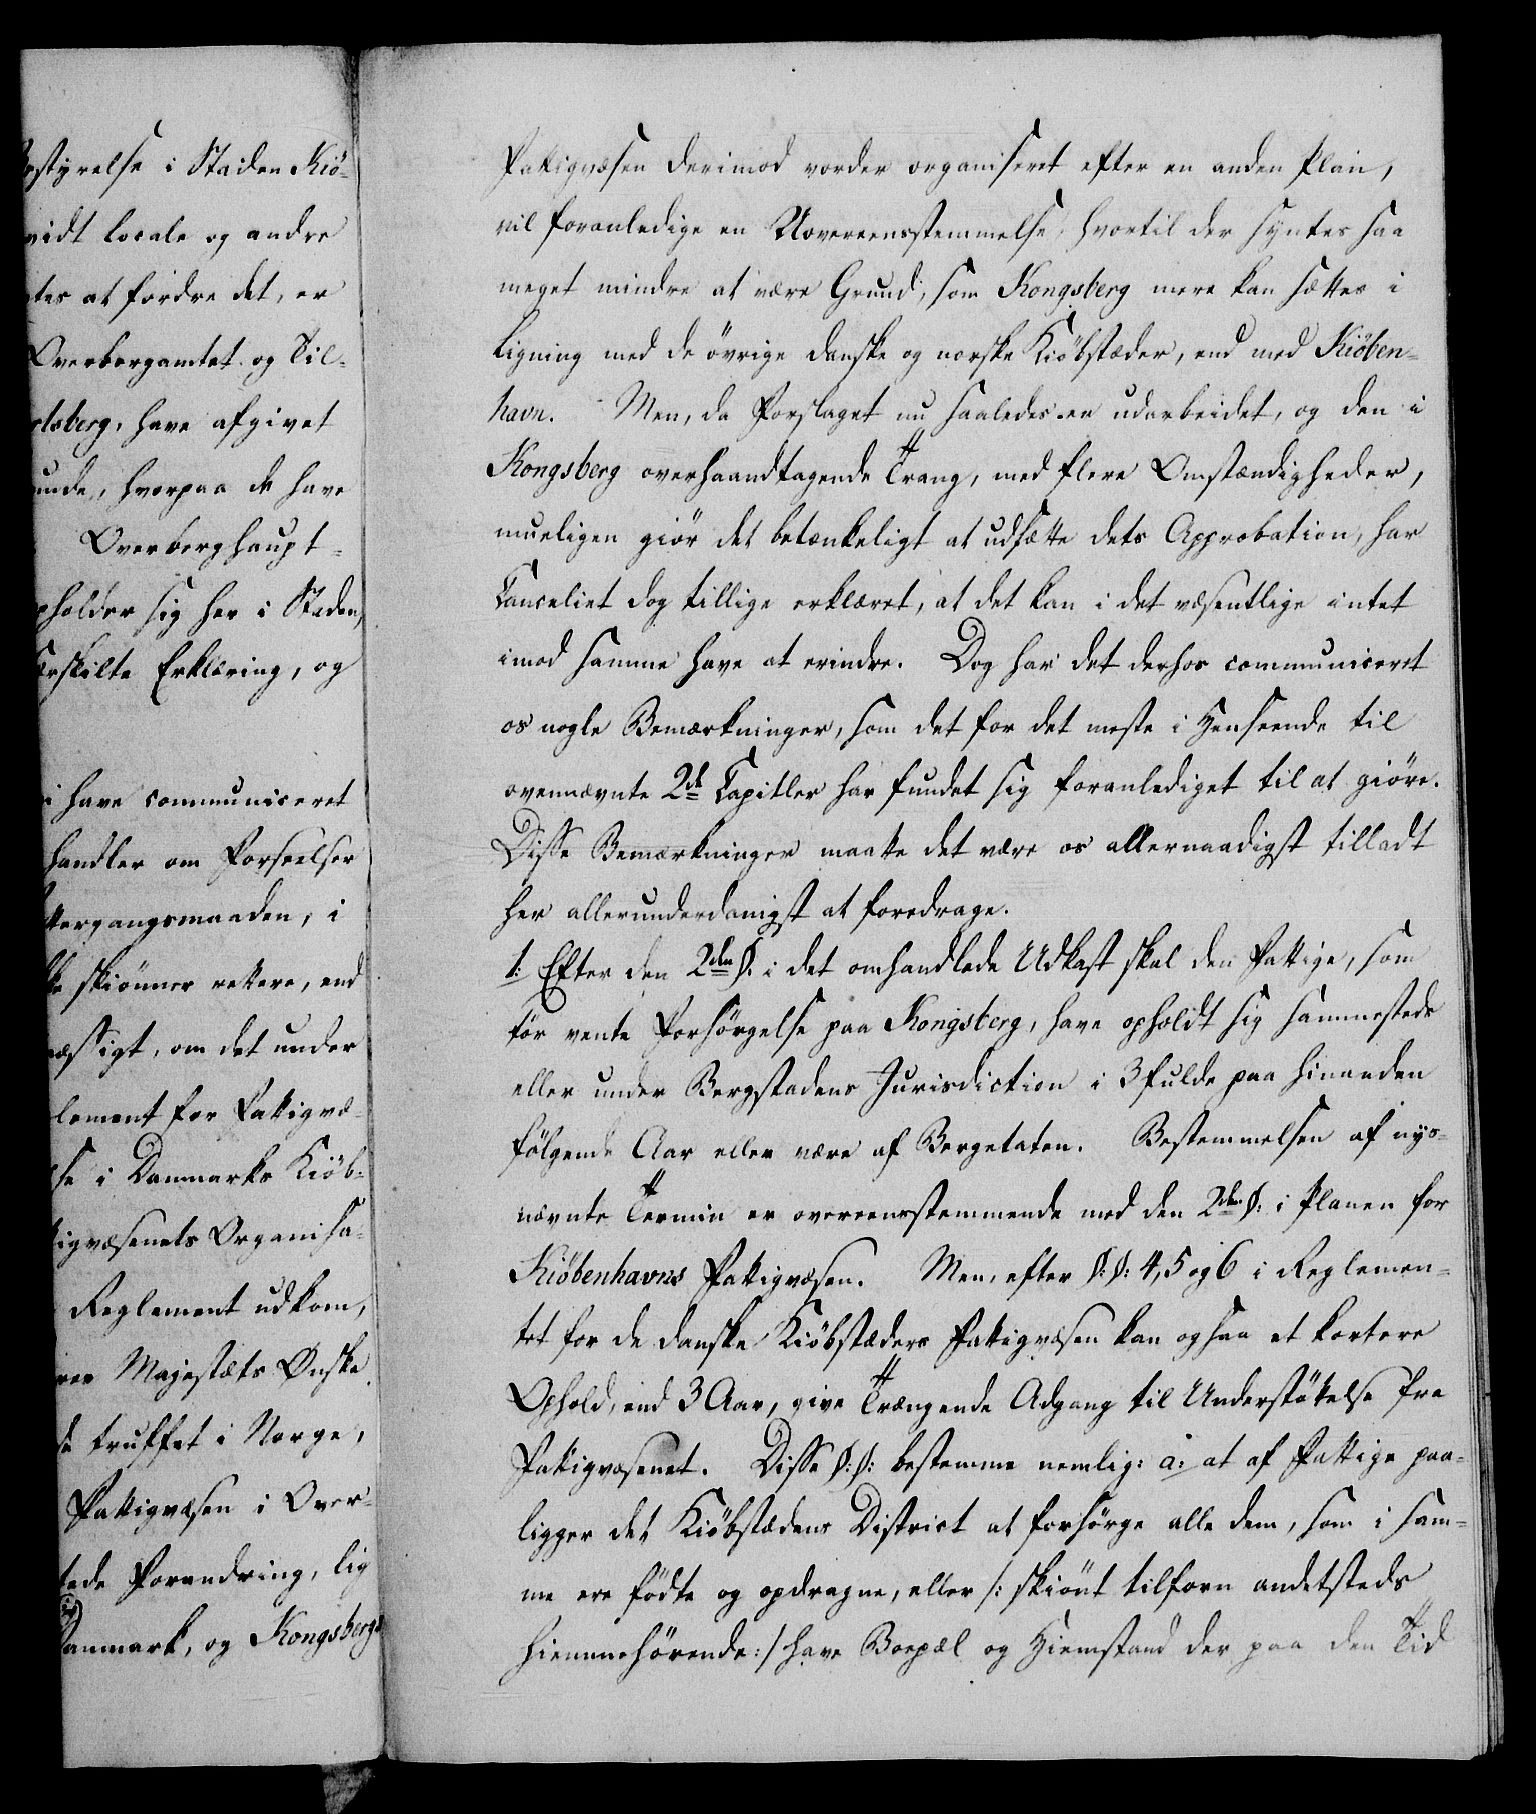 styrelse i Staden Kiö-
vidt locale og andre
ntes at fordre det, er
Overbergamtet og Til-
rlsberg, have afgivet
unde, hvorpaa de have
Overberghaupt-
pholder sig her i Staden,
ærskilte Erklæring, og
i have communiceret
handler om Forseelser
ttergangsmaaden, i
ke skiönner rettere, end
mæssigt, om det under
lement for Fattigvæ-
se i Danmarks Kiöb-
igvæsenets Organisa-
Reglement udkom,
res Majestæts Ønske
truffet i Norge,
Fattigvæsen i Over-
tede Forandring, lig
Danmark, og Kongsbergs
Fattigvæsen derimod vorder organiseret efter en anden Plan,
vil foranledige en Uovereensstemmelse, hvortil der syntes saa
meget mindre at være Grund, som Kongsberg mere kan sættes i
Ligning med de övrige danske og norske Kiöbstæder, end med Kiöben-
havn. Men, da Forslaget nu saaledes er udarbeidet, og den i
Kongsberg overhaandtagende Trang, med flere Omstændigheder,
mueligen giör det betænkeligt at udsætte dets Approbation, har
Canceliet dog tillige erklæret, at det kan i det væsentlige intet
imod samme have at erindre. Dog har det derhos communiceret
os nogle Bemærkninger, som det for det meste i Henseende til
ovennævnte 2de Capitler har fundet sig foranlediget til at giöre.
Disse Bemærkninger maatte det være os allernaadigst tilladt
her allerunderdanigst at foredrage.
1: Efter den 2den §. i det omhandlede Udkast skal den Fattige, som
tör vente Forsörgelse paa Kongsberg, have opholdt sig sammestede
eller under Bergstadens Jurisdiction i 3 fulde paa hinanden
fölgende Aar eller være af Bergetaten. Bestemmelsen af nys-
nævnte Termin er overeensstemmende med den 2den §: i Planen for
Kiöbenhavns Fattigvæsen. Men, efter §:§: 4, 5 og 6 i Reglemen-
tet for de danske Kiöbstæders Fattigvæsen kan ogsaa et kortere
Ophold, end 3 Aar, give Trængende Adgang til Understöttelse fra
Fattigvæsenet. Disse §:§: bestemme nemlig: a: at af Fattige paa-
ligger det Kiöbstædens District at forsörge alle dem, som i sam-
me ere födte og opdragne, eller /: skiönt tilforn andetsteds
hiemmehörende :/ have Boepæl og Hiemstand der paa den Tid